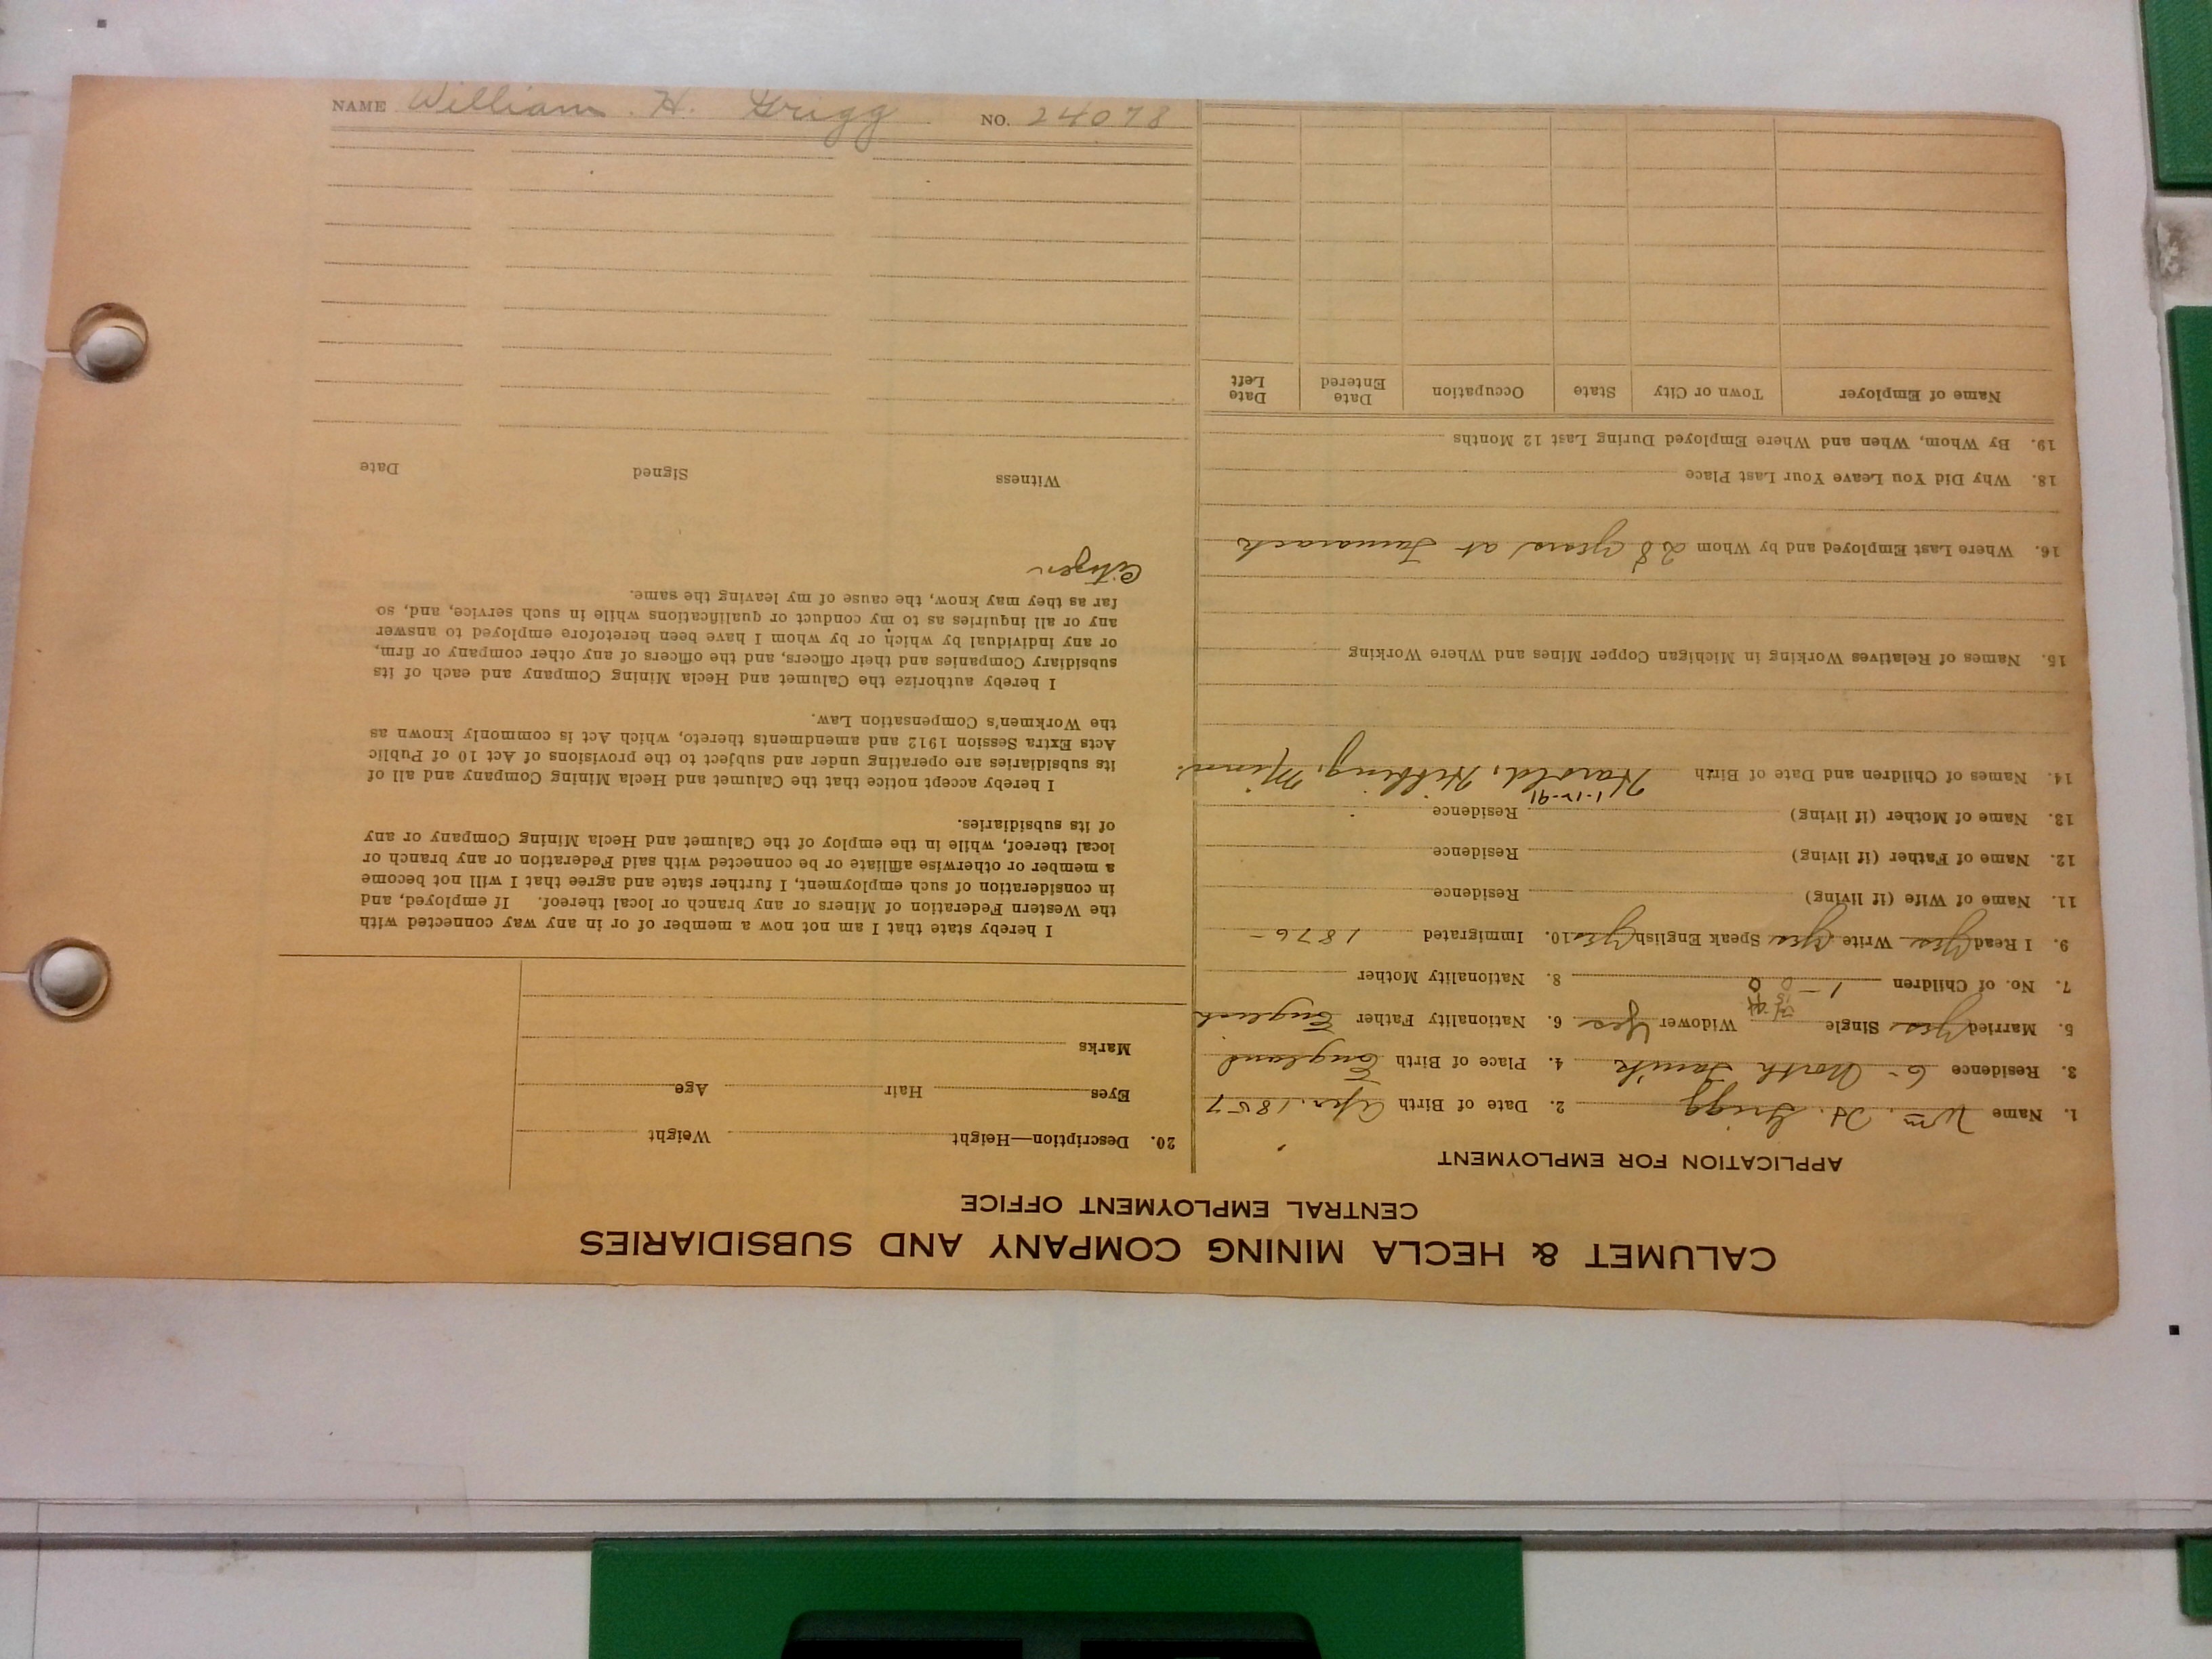 CALUMET & HECLA MINING COMPANY AND SUBSIDIARIES
CENTRAL EMPLOYMENT OFFICE
APPLICATION FOR EMPLOYMENT
1. Name Wm. H. Grigg 2. Date of Birth Apr. 1857
3. Residence 6 - North Tam'k 4. Place of Birth England
5. Married yes Single Widower yes 6. Nationality Father English
7. No. of Children 1 - 8. Nationality Mother
9. I Read yes Write yes Speak English yes 10. Immigrated 1876 -
11. Name of Wife (if living) Residence
12. Name of Father (if living) Residence
13. Name of Mother (if living) Residence
1-12-91
14. Names of Children and Date of Birth Harold, Hibbing, Minn.
15. Names of Relatives Working in Michigan Copper Mines and Where Working
16. Where Last Employed and by Whom 28 years at Tamarack
18. Why Did You Leave Your Last Place
19. By Whom, When and Where Employed During Last 12 Months
Name of Employer Town or City State Occupation Date Entered Date Left
20. Description—Height Weight
Eyes Hair Age
Marks
I hereby state that I am not now a member of or in any way connected with
the Western Federation of Miners or any branch or local thereof. If employed, and
in consideration of such employment, I further state and agree that I will not become
a member or otherwise affiliate or be connected with said Federation or any branch or
local thereof, while in the employ of the Calumet and Hecla Mining Company or any
of its subsidiaries.
I hereby accept notice that the Calumet and Hecla Mining Company and all of
its subsidiaries are operating under and subject to the provisions of Act 10 of Public
Acts Extra Session 1912 and amendments thereto, which Act is commonly known as
the Workmen's Compensation Law.
I hereby authorize the Calumet and Hecla Mining Company and each of its
subsidiary Companies and their officers, and the officers of any other company or firm,
or any individual by which or by whom I have been heretofore employed to answer
any or all inquiries as to my conduct or qualifications while in such service, and, so
far as they may know, the cause of my leaving the same.
Citizen
Witness Signed Date
NAME William H. Grigg NO. 24078